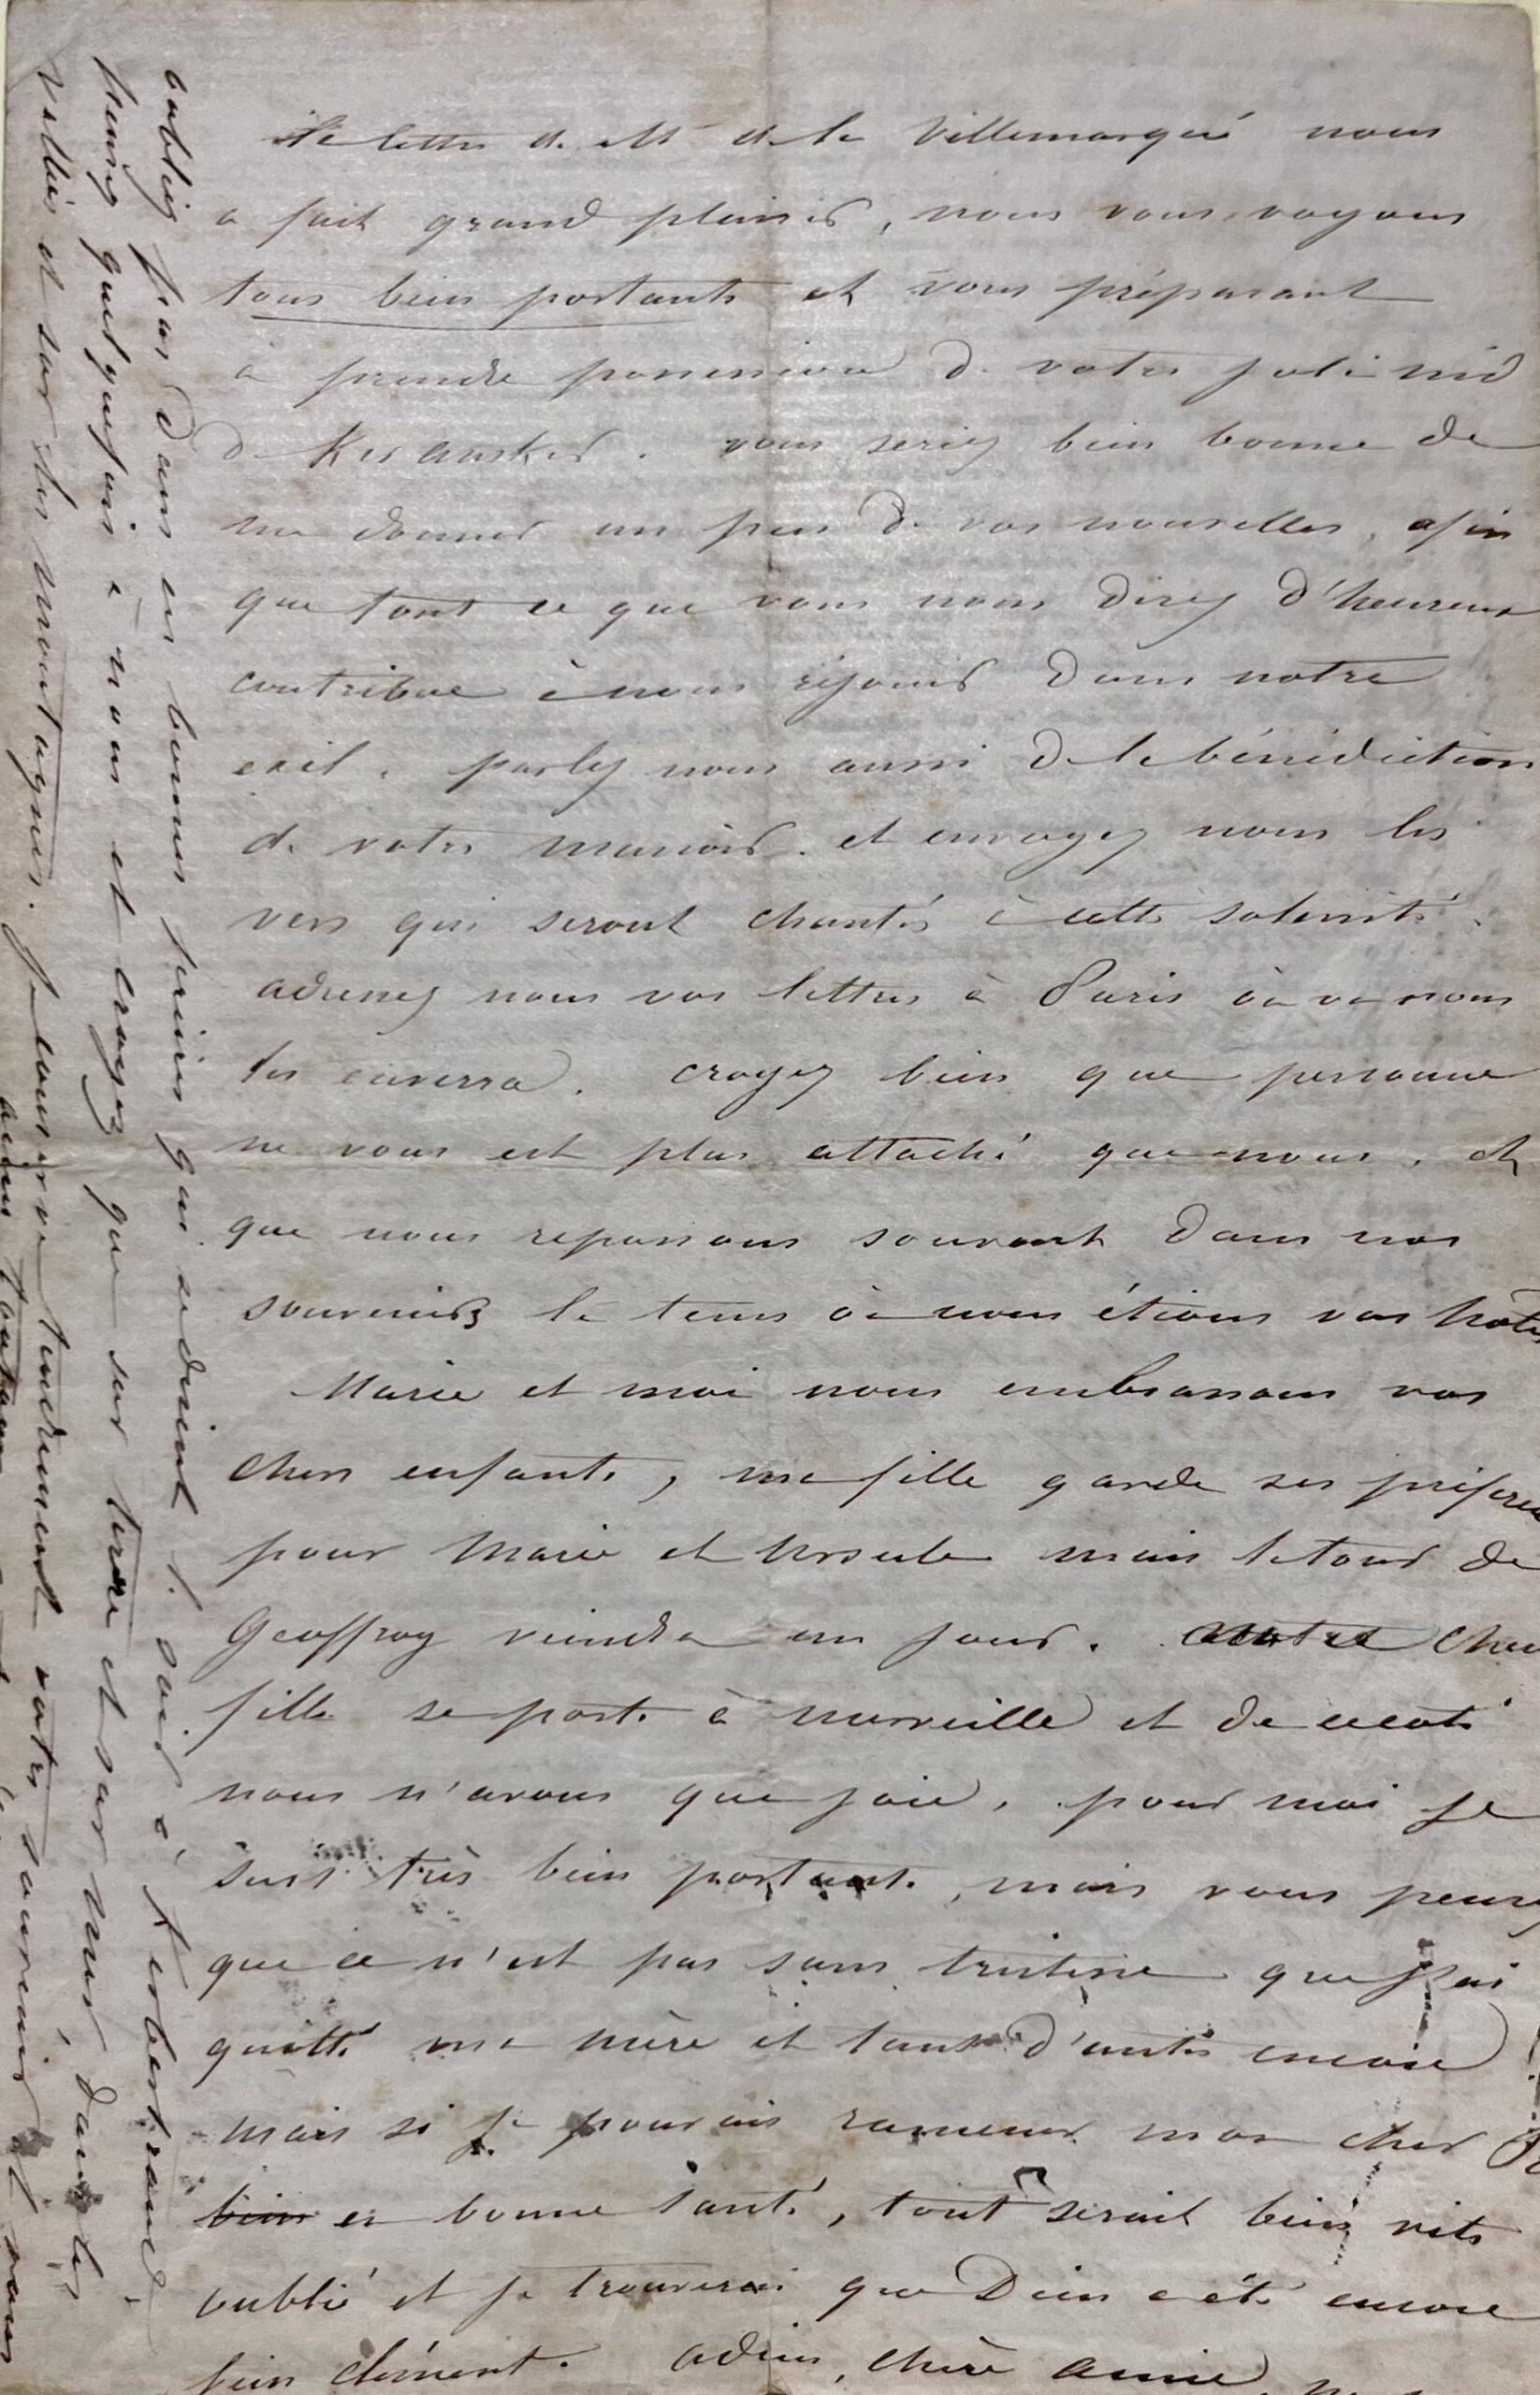 la lettre de Mr de la Villemarqué nous
a fait grand plaisir, nous vous voyons
tous bien portants et vous préparant
à prendre possession de votre joli nid
de Keransker. vous seriez bien bonne de
me donner un peu de vos nouvelles, afin
que tout ce que vous nous direz d'heureux
contribue à nous réjouir dans notre
exil. parlez nous aussi de la bénédiction
de votre manoir. et envoyez nous les
vers qui seront chantés à cette solennité.
adressez nous vos lettres à Paris où on nous
les enverra. croyez bien que personne
ne vous est plus attaché que nous, et
que nous repassons souvent dans nos
souvenirs le tems où nous étions vos hôtes
Marie et moi nous embrassons vos
chers enfants, ma fille garde ses préféren
pour Marie et Ursule mais le tour de
Geoffroy viendra un jour. cette chère
fille se porte à merveille et de ce côté
nous n'avons que joie, pour moi je
suis très bien portante, mais vous pensez
que ce n'est pas sans tristesse que j'ai
quitté ma mère et tant d'autres encore
mais si je pouvais ramener mon cher
bien en bonne santé, tout serait bien vite
oublié et je trouverai que Dieu a été encore
bien clément. adieu, chère amie,
oubliez pas dans les bonnes prières qui se disent le soir à Kerbertrand
pensez quelquefois à nous et croyez que sur terre et sur mer, dans les
vallées et sur les montagnes. je conserve tendrement votre souvenir et vous